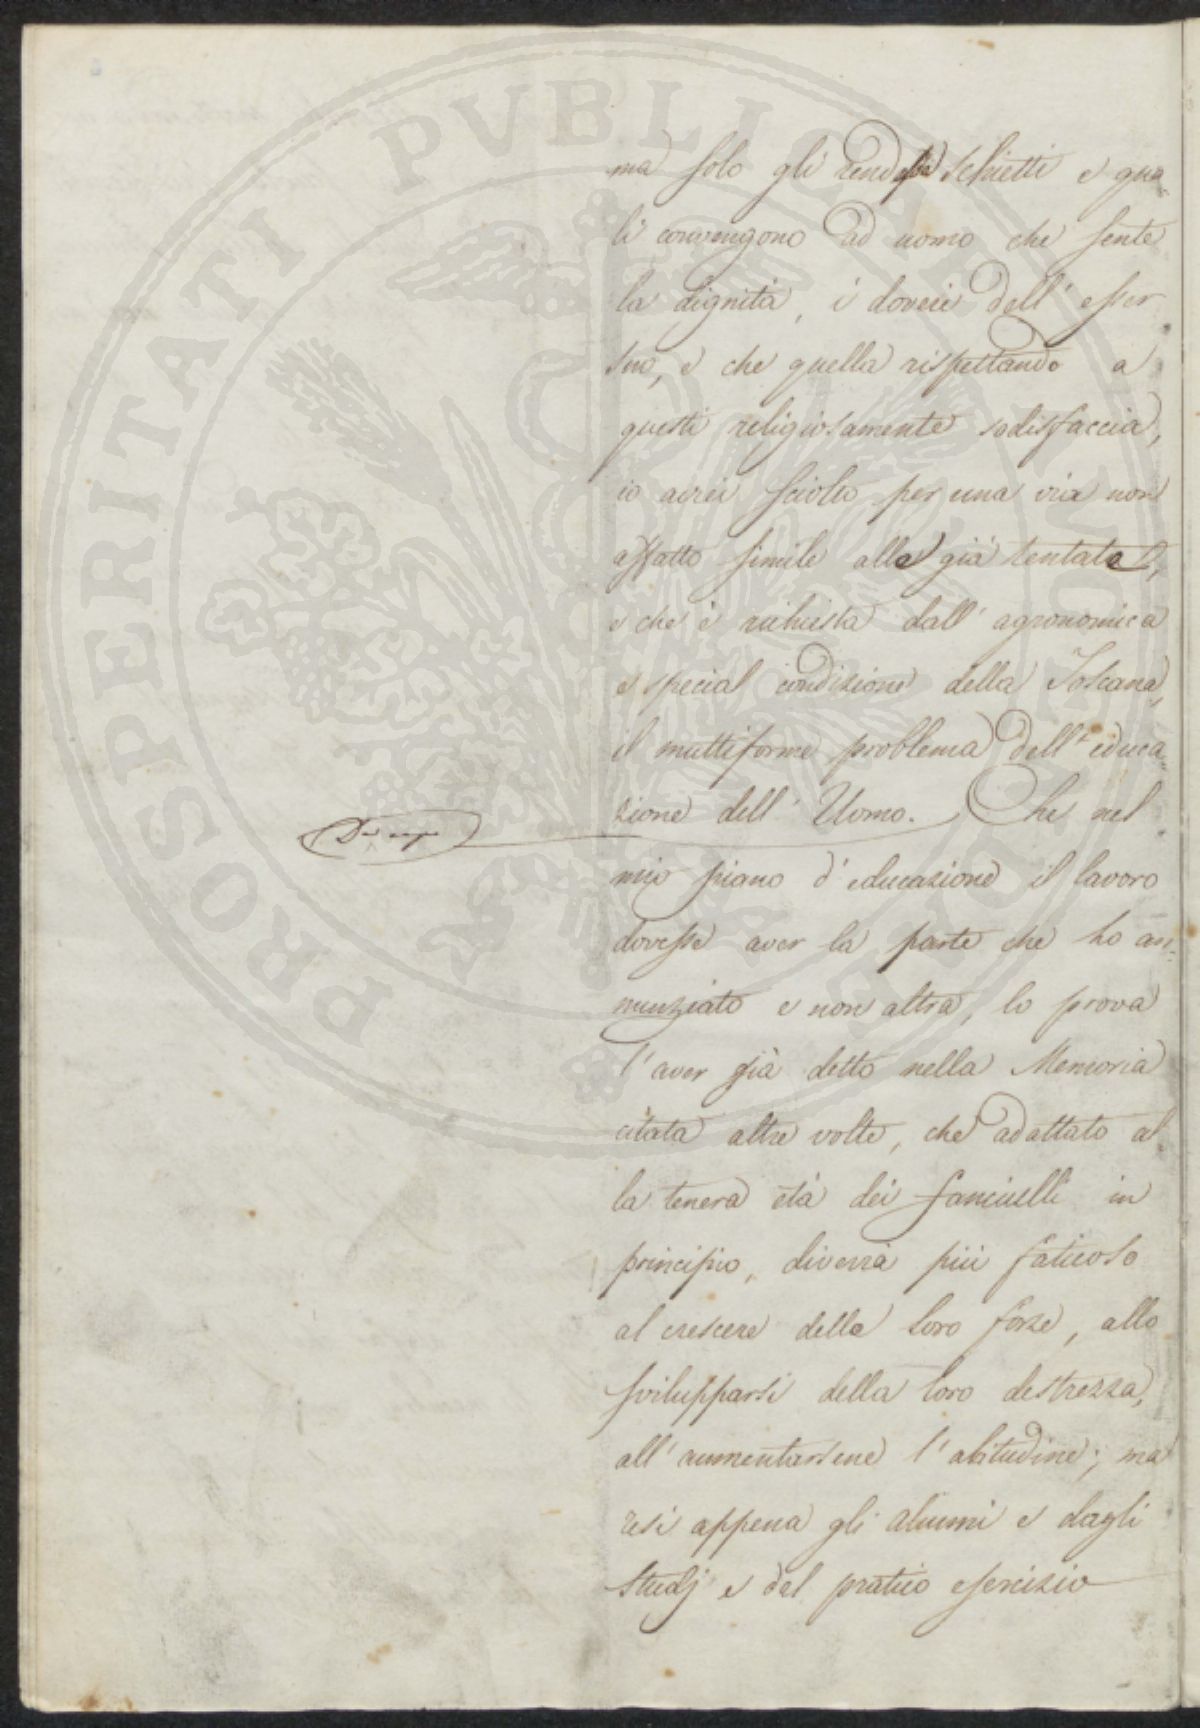 PROSPERITATI PUBLICAE AUGENDAE
ma solo gli rendesse schietti e qua=
li convengono ad uomo che sente
la dignità, i doveri dell' esser
suo, e che quella rispettando a
questi religiosamente sodisfaccia,
io avrei sciolto per una via non
affatto simile alle già tentate,
e che è richiesta dall' agronomica
e special condizione della Toscana,
il multiforme problema dell' educa=
zione dell' Uomo. Che nel
Da capo
mio piano d' educazione il lavoro
dovesse aver la parte che ho an=
nunziato e non altra, lo prova
l' aver già detto nella Memoria
citata altre volte, che adattato al=
la tenera età dei fanciulli in
principio, diverrà più faticoso
al crescere delle loro forze, allo
svilupparsi della loro destrezza,
all' aumentarsene l' abitudine; ma
resi appena gli alunni e dagli
studj e dal pratico esercizio